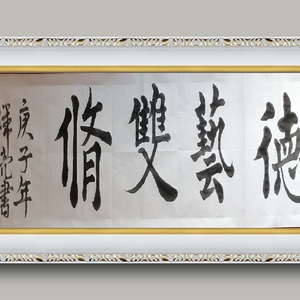 德藝雙脩
庚子年
祥亮書